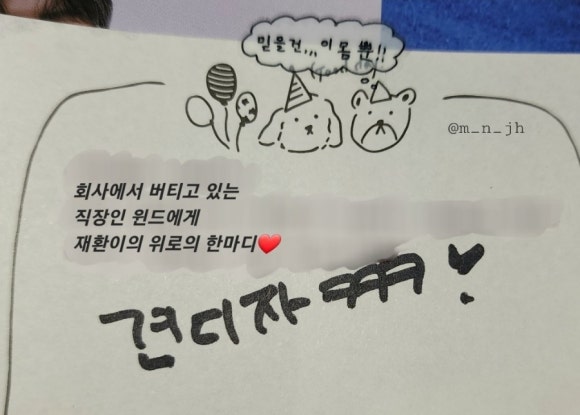 믿을건,,,이 몸 뿐!!
@m_n_jh
회사에서 버티고 있는
직장인 윈드에게
재환이의 위로의 한마디❤️
견디자 ㅋㅋㅋ